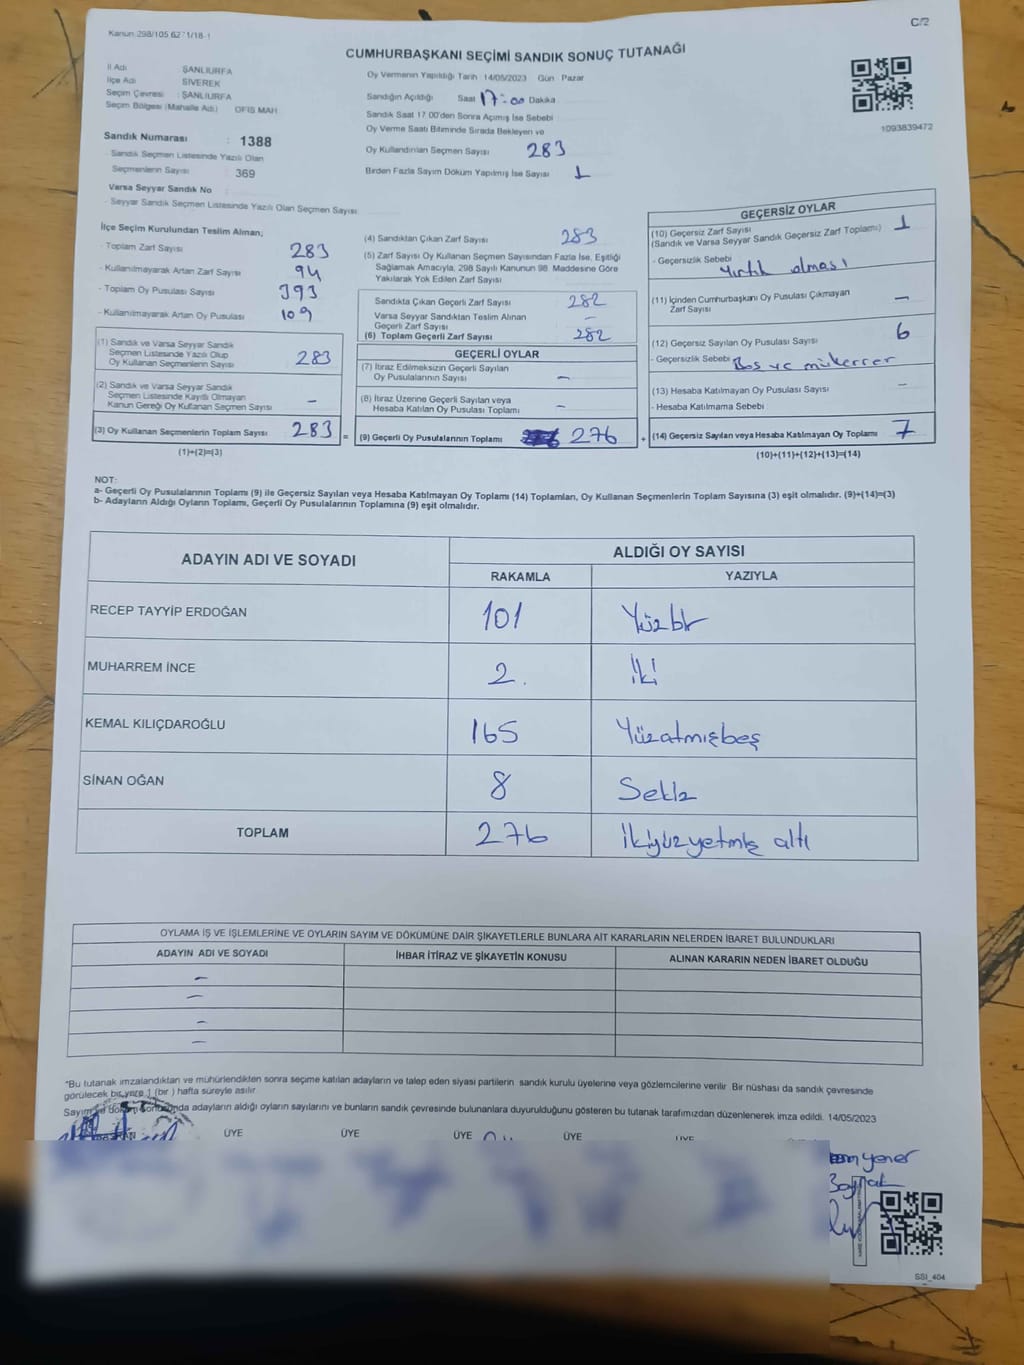 Kanun 298/105 627 1/18-1
C/2
CUMHURBAŞKANI SEÇİMİ SANDIK SONUÇ TUTANAĞI
İl Adı ŞANLIURFA
İlçe Adı SİVEREK
Seçim Çevresi : ŞANLIURFA
Seçim Bölgesi (Mahalle Adı) OFIS MAH
Sandık Numarası : 1388
- Sandık Seçmen Listesinde Yazılı Olan
Seçmenlerin Sayısı : 369
Varsa Seyyar Sandık No
- Seyyar Sandık Seçmen Listesinde Yazılı Olan Seçmen Sayısı
Oy Vermenin Yapıldığı Tarih 14/05/2023 Gün Pazar
Sandığın Açıldığı Saat 17:00 Dakika
Sandık Saat 17.00'den Sonra Açımış İse Sebebi
Oy Verme Saati Bitiminde Sırada Bekleyen ve
Oy Kullandırılan Seçmen Sayısı 283
Birden Fazla Sayım Döküm Yapılmış İse Sayısı 1
1093839472
İlçe Seçim Kurulundan Teslim Alınan;
- Toplam Zarf Sayısı 283
- Kullanılmayarak Artan Zarf Sayısı 94
- Toplam Oy Pusulası Sayısı 393
- Kullanılmayarak Artan Oy Pusulası 109
(1) Sandık ve Varsa Seyyar Sandık
Seçmen Listesinde Yazılı Olup
Oy Kullanan Seçmenlerin Sayısı 283
(2) Sandık ve Varsa Seyyar Sandık
Seçmen Listesinde Kayıtlı Olmayan
Kanun Gereği Oy Kullanan Seçmen Sayısı –
(3) Oy Kullanan Seçmenlerin Toplam Sayısı 283 =
(1)+(2)=(3)
(4) Sandıktan Çıkan Zarf Sayısı 283
(5) Zarf Sayısı Oy Kullanan Seçmen Sayısından Fazla İse, Eşitliği
Sağlamak Amacıyla, 298 Sayılı Kanunun 98. Maddesine Göre
Yakılarak Yok Edilen Zarf Sayısı
Sandıkta Çıkan Geçerli Zarf Sayısı 282
Varsa Seyyar Sandıktan Teslim Alınan
Geçerli Zarf Sayısı –
(6) Toplam Geçerli Zarf Sayısı 282
GEÇERLİ OYLAR
(7) İtiraz Edilmeksizin Geçerli Sayılan
Oy Pusulalarının Sayısı –
(8) İtiraz Üzerine Geçerli Sayılan veya
Hesaba Katılan Oy Pusulası Toplamı –
(9) Geçerli Oy Pusulalarının Toplamı 276 +
GEÇERSİZ OYLAR
(10) Geçersiz Zarf Sayısı 1
(Sandık ve Varsa Seyyar Sandık Geçersiz Zarf Toplamı)
- Geçersizlik Sebebi Yırtık olması
(11) İçinden Cumhurbaşkanı Oy Pusulası Çıkmayan
Zarf Sayısı –
(12) Geçersiz Sayılan Oy Pusulası Sayısı 6
- Geçersizlik Sebebi Boş ve mükerrer
(13) Hesaba Katılmayan Oy Pusulası Sayısı –
- Hesaba Katılmama Sebebi
(14) Geçersiz Sayılan veya Hesaba Katılmayan Oy Toplamı 7
(10)+(11)+(12)+(13)=(14)
NOT:
a- Geçerli Oy Pusulalarının Toplamı (9) ile Geçersiz Sayılan veya Hesaba Katılmayan Oy Toplamı (14) Toplamları, Oy Kullanan Seçmenlerin Toplam Sayısına (3) eşit olmalıdır. (9)+(14)=(3)
b- Adayların Aldığı Oyların Toplamı, Geçerli Oy Pusulalarının Toplamına (9) eşit olmalıdır.
ADAYIN ADI VE SOYADI ALDIĞI OY SAYISI
RAKAMLA YAZIYLA
RECEP TAYYİP ERDOĞAN 101 Yüzbir
MUHARREM İNCE 2. İki
KEMAL KILIÇDAROĞLU 165 Yüzatmışbeş
SİNAN OĞAN 8 Sekiz
TOPLAM 276 İkiyüzyetmiş altı
OYLAMA İŞ VE İŞLEMLERİNE VE OYLARIN SAYIM VE DÖKÜMÜNE DAİR ŞİKAYETLERLE BUNLARA AİT KARARLARIN NELERDEN İBARET BULUNDUKLARI
ADAYIN ADI VE SOYADI İHBAR İTİRAZ VE ŞİKAYETİN KONUSU ALINAN KARARIN NEDEN İBARET OLDUĞU
–
–
–
–
*Bu tutanak imzalandıktan ve mühürlendikten sonra seçime katılan adayların ve talep eden siyasi partilerin sandık kurulu üyelerine veya gözlemcilerine verilir. Bir nüshası da sandık çevresinde
görülecek bir yere 1 (bir ) hafta süreyle asılır
Sayım ve döküm sonucunda adayların aldığı oyların sayılarını ve bunların sandık çevresinde bulunanlara duyurulduğunu gösteren bu tutanak tarafımızdan düzenlenerek imza edildi. 14/05/2023
ÜYE ÜYE ÜYE ÜYE ÜYE
yener
SSI_404